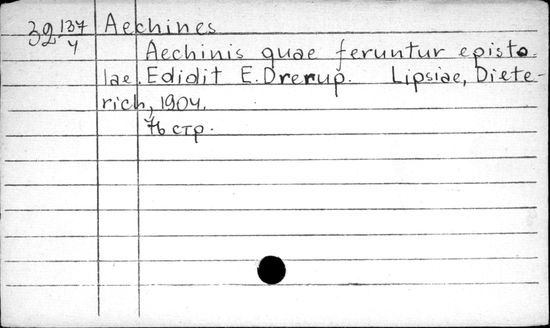 32 137/4 Aechines
Aechinis quae feruntur episto-
lae. Edidit E. Drerup. Lipsiae, Diete-
rich, 1904.
76 стр.